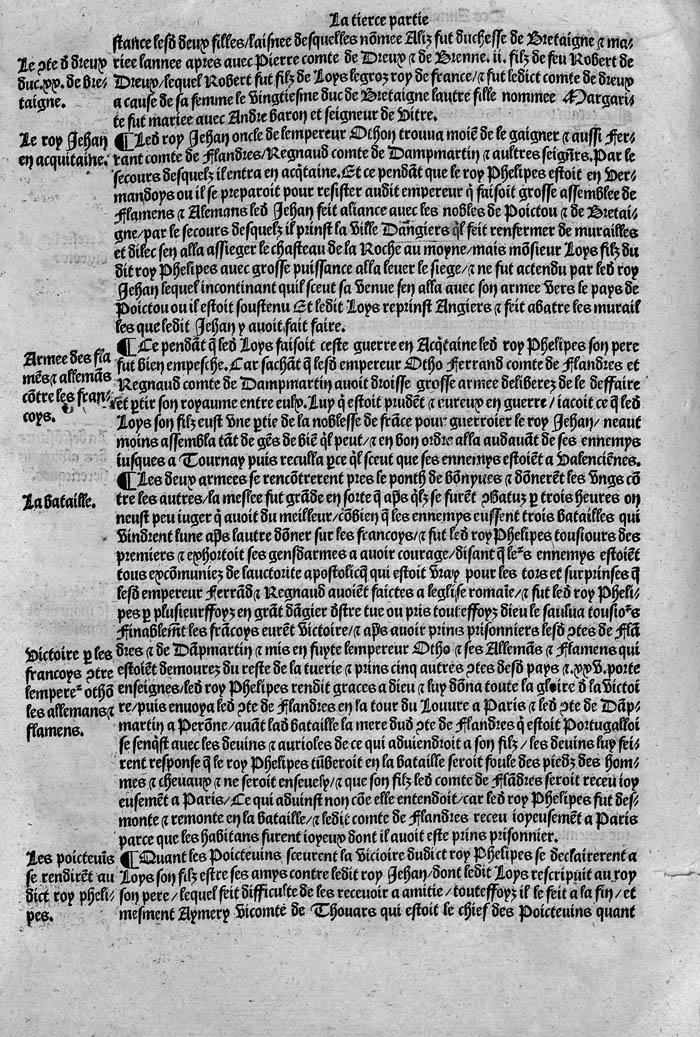 La tierce partie
stance lesd deux filles/laisnee desquelles nõmee Aliz fut duchesse de Bretaigne ⁊ ma-
riee lannee apres avec Pierre comte de Dreux ⁊ de Brenne. ii. filz de feu Robert de
Dreux/lequel Robert fut filz de Loys legroz roy de france/⁊ fut ledict comte de dreux
a cause de sa femme le vingtiesme duc de Bretaigne lautre fille nommee Margari-
te fut mariee avec Andre baron et seigneur de Vitre.
Le ꝯte d dreux
duc.xx. de bre-
taigne.
¶Led roy Jehan oncle de lempereur Othon trouva moiẽ de le gaigner ⁊ aussi Fer-
rant comte de Flandres/Regnaud comte de Dampmartin ⁊ aultres seigñrs.Par le
secours desquelz il entra en acq̃taine.Et ce pendãt que le roy Phelipes estoit en Ver-
mandoys ou il se preparoit pour resister audit empereur q̃ faisoit grosse assemblee de
Flamens ⁊ Alemans led Jehan feit aliance avec les nobles de Poictou ⁊ de Bretai-
gne/par le secours desquelz il prinst la ville Dãgiers q̃l feit renfermer de murailles
et dilec sen alla assieger le chasteau de la Roche au moyne/mais mõsieur Loys filz du
dit roy Phelipes avec grosse puissance alla lever le siege/⁊ ne fut actendu par led roy
Jehan lequel incontinant quil sceut sa venue sen alla avec son armee vers le pays de
Poictou ou il estoit soustenu Et ledit Loys reprinst Angiers ⁊ feit abatre les murail
les que ledit Jehan y avoit fait faire.
Le roy Jehan
en acquitaine.
¶Ce pendãt q̃ led Loys faisoit ceste guerre en Acq̃taine led roy Phelipes son pere
fut bien empesche. Car sachãt q̃ lesd empereur Otho Ferrand comte de Flandres et
Regnaud comte de Dampmartin avoit droisse grosse armee deliberez de le deffaire
et ꝑtir son royaume entre eulx. Luy q̃ estoit prudẽt ⁊ eureux en guerre/iacoit ce q̃ led
Loys son filz eust vne ꝑtie de la noblesse de frãce pour guerroier le roy Jehan/neaut
moins assembla tãt de gẽs de biẽ q̃l peut/⁊ en bon ordre alla audavãt de ses ennemys
iusques a Tournay puis reculla ꝑce q̃l sceut que ses ennemys estoiẽt a Valenciẽnes.
Armee des fla
mẽs ⁊ allemãs
cõtre les fran-
coys.
¶Les deux armees se rencõtrerent pres le ponth de bõnynes ⁊ dõnerẽt les vngs cõ
tre les autres/la meslee fut grãde en sorte q̃ ap̃s q̃lz se furẽt ꝯbatuz ꝑ trois heures on
neust peu iuger q̃ avoit du meilleur/cõbien q̃ les ennemys eussent trois batailles qui
vindrent lune ap̃s lautre dõner sur les francoys/⁊ fut led roy Phelipes tousiours des
premiers ⁊ exhortoit ses gensdarmes a avoir courage/disant q̃ leᷣs ennemys estoiẽt
tous excõmuniez de lauctorite apostolicq̃ qui estoit vray pour les tors et surprinses q̃
lesd empereur Ferrãd ⁊ Regnaud avoiẽt faictes a leglise romaĩe/⁊ fut led roy Pheli-
pes ꝑ plusieurffoyz en grãt dãgier dstre tue ou pris touteffoyz dieu le saulva tousioᷣs
Finablem̃t les frãcoys eurẽt Victoire/⁊ ap̃s avoir prins prisonniers lesd ꝯtes de Flã
dres ⁊ de Dãpmartin ⁊ mis en fuyte lempereur Otho ⁊ ses Allemãs ⁊ Flamens qui
estoiẽt demourez du reste de la tuerie ⁊ prins cinq autres ꝯtes desd pays ⁊.xxv. porte
enseignes/led roy Phelipes rendit graces a dieu ⁊ luy dõna toute la gloire d la victoi
re/puis envoya led ꝯte de Flandres en la tour du Louvre a Paris ⁊ led ꝯte de Dãp-
martin a Perõne/avãt lad bataille la mere dud ꝯte de Flandres q̃ estoit Portugalloi
se senq̃st avec les devins ⁊ aurioles de ce qui adviendroit a son filz/les devins luy fei-
rent response q̃ le roy Phelipes tũberoit en la bataille seroit foule des piedz des hom-
mes ⁊ chevaux ⁊ ne seroit ensevely/⁊ que son filz led comte de Flãdres seroit receu ioy
eusemẽt a Paris/Ce qui advinst non cõe elle entendoit/car led roy Phelipes fut des-
monte ⁊ remonte en la bataille/⁊ ledit comte de Flandres receu ioyeusemẽt a Paris
parce que les habitans furent ioyeux dont il avoit este prins prisonnier.
La bataille.
Victoire ꝑ les
francoys ꝯtre
lempereᷣ othõ
les allemans ⁊
flamens.
¶Quant les Poictevins sceurent la Victoire dudict roy Phelipes se declairerent a
Loys son filz estre ses amys contre ledit roy Jehan/dont ledit Loys rescripuit au roy
son pere/lequel feit difficulte de les recevoir a amitie/touteffoyz il le feit a la fin/et
mesment Aymery vicomte de Thouars qui estoit le chief des Poictevins quant
Les poictevĩs
se rendirẽt au
dict roy pheli-
pes.